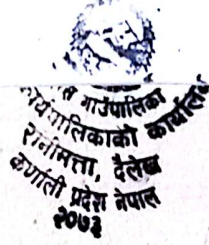 गाउँपालिका
कार्यपालिकाको कार्यालय
रानीमत्ता, दैलेख
कर्णाली प्रदेश नेपाल
२०७३